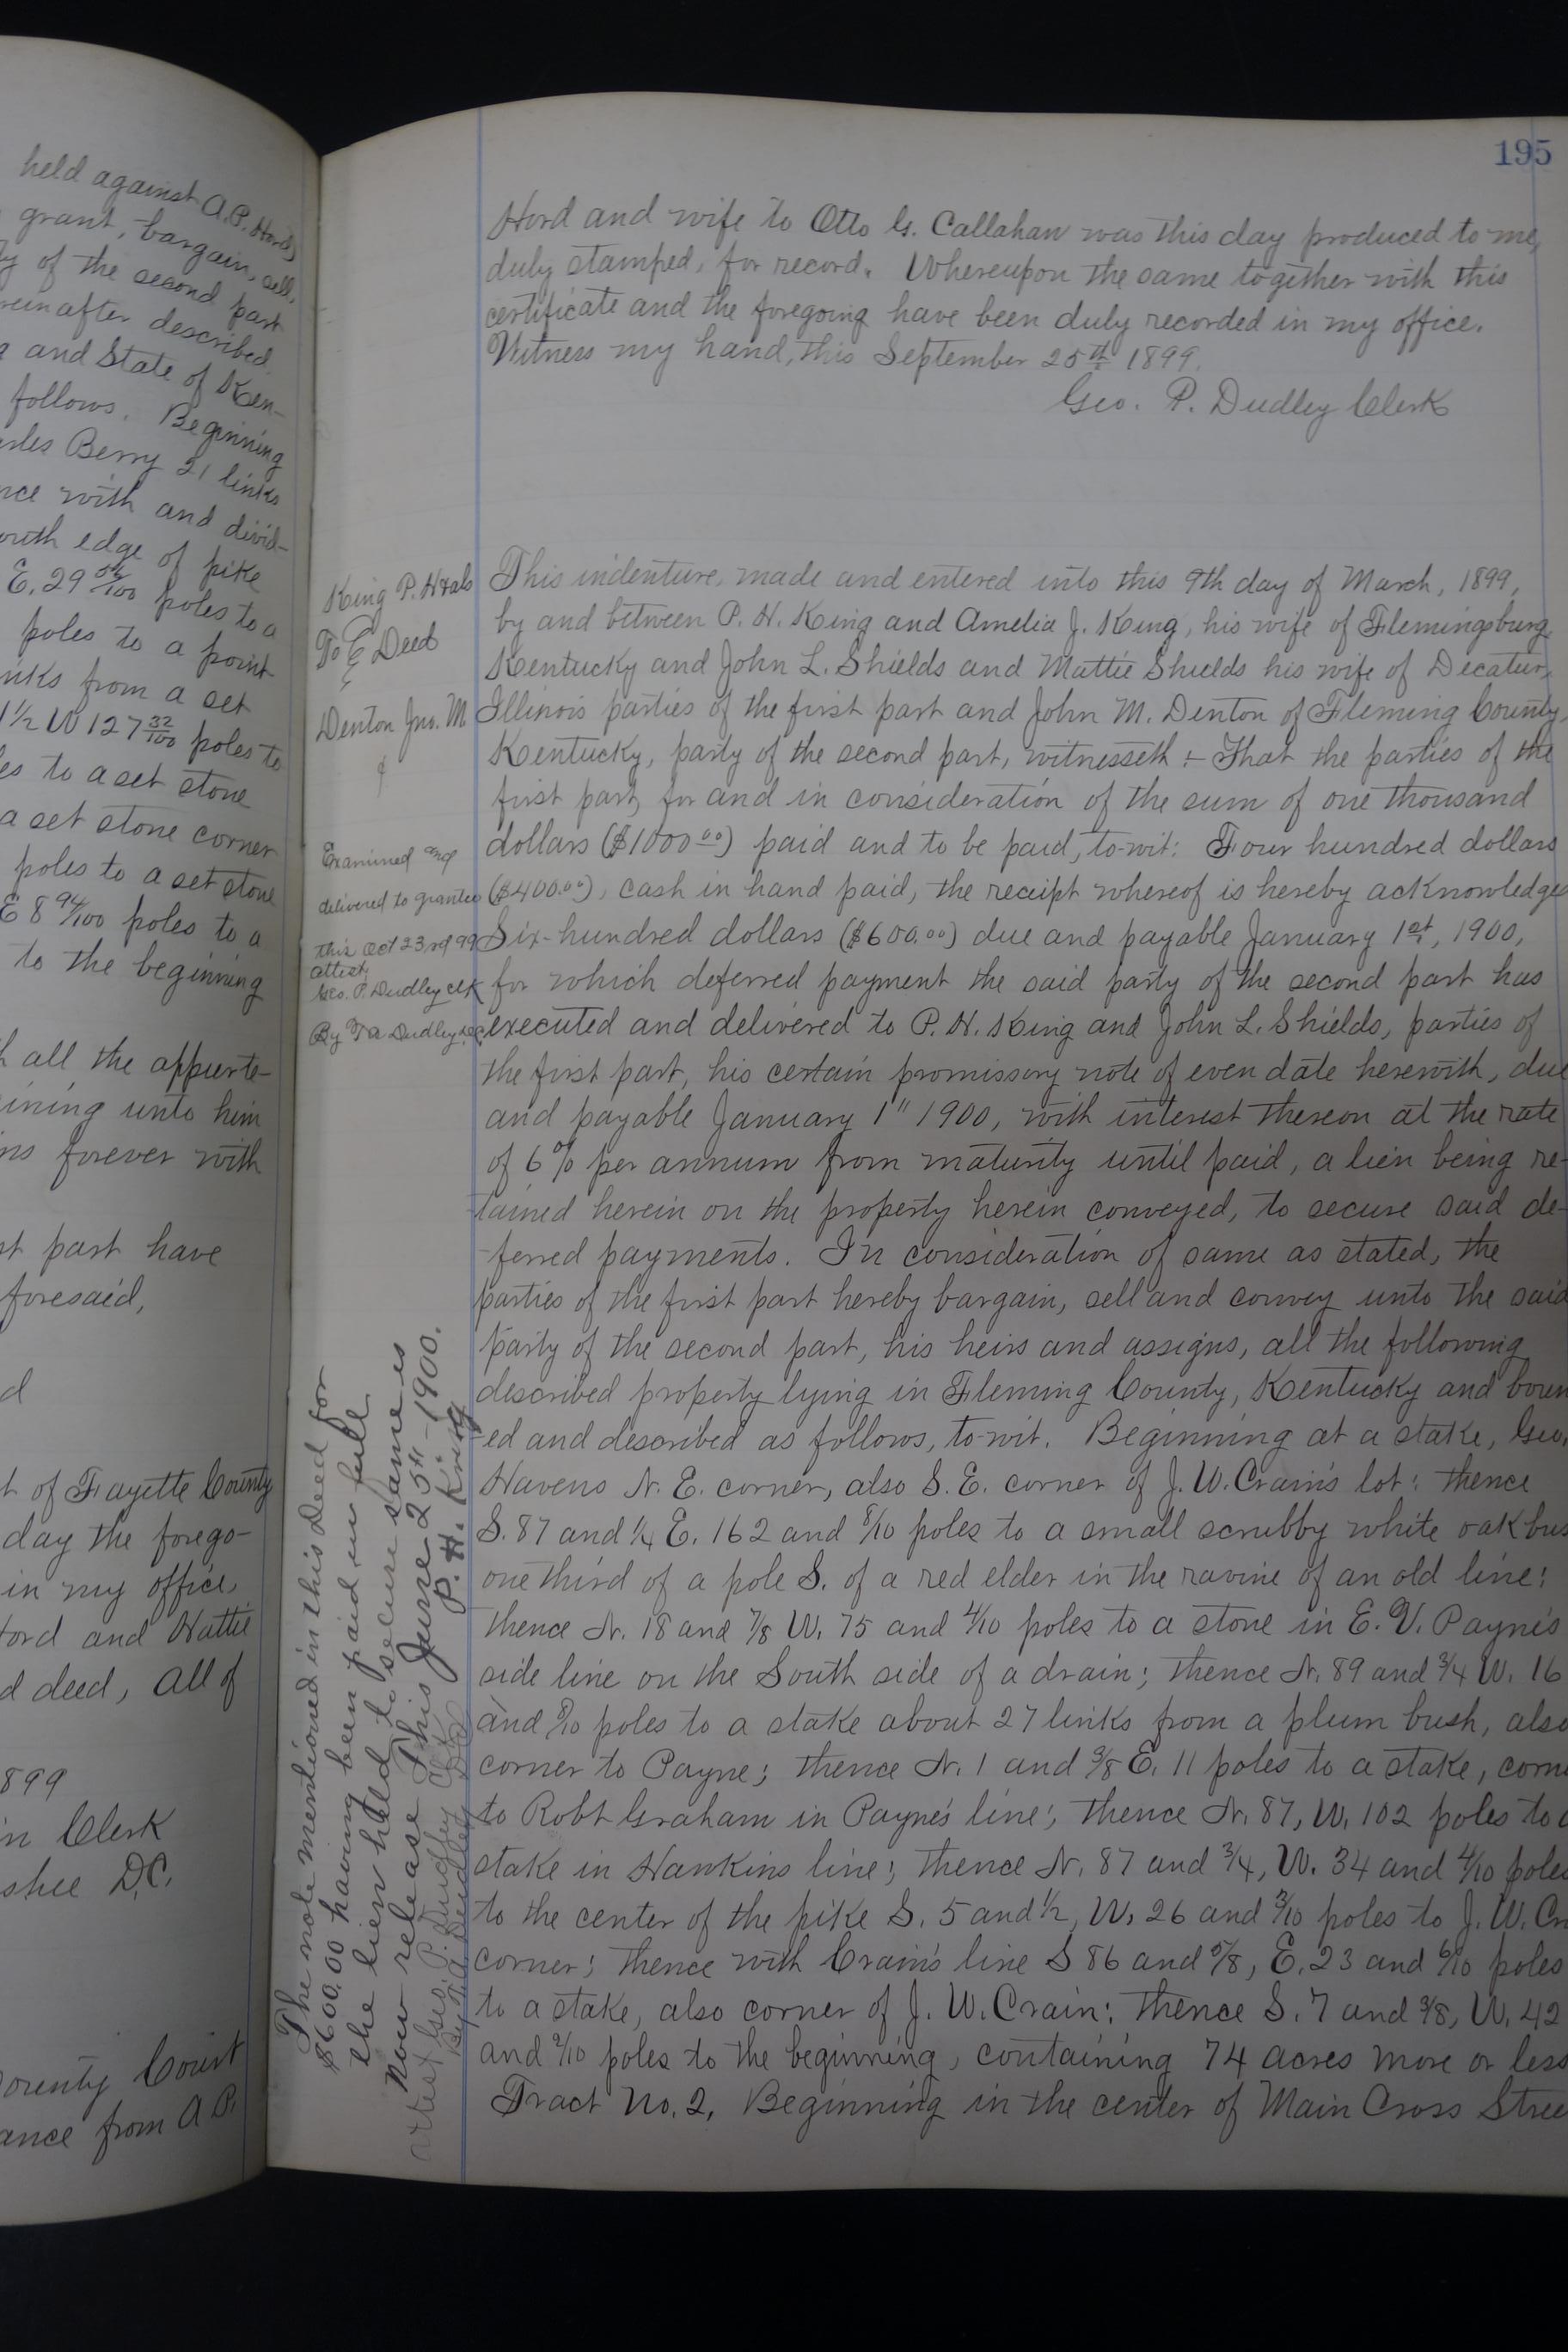 held against A.P. Hord
grant, bargain, sell,
of the second part
reinafter described
and State of Ken-
follows. Beginning
rles Berry 21 links
nce with and divid-
outh edge of pike
E. 29 poles to a
poles to a point
inks from a set
1½ W 127 32/100 poles to
es to a set stone
a set stone corner
poles to a set stone
E 8 94/100 poles to a
to the beginning
h all the appurte-
ining unto him
ns forever with
st part have
foresaid,
d
t of Fayette County
day the forego-
in my office,
ford and Hattie
d deed, all of
899
in Clerk
shee D.C.
ounty Court
ance from A.P.
195
Hord and wife to Otto G. Callahan was this day produced to me,
duly stamped, for record. Whereupon the same together with this
certificate and the foregoing have been duly recorded in my office.
Witness my hand, this September 25th 1899.
Geo. P. Dudley Clerk
King P. H & als
To & Deed
Denton Jno. M
Examined and
delivered to grantee
this Oct 23rd 99
attest;
Geo. P. Dudley clk
By T A Dudley D.C.
This indenture, made and entered into this 9th day of March, 1899,
by and between P. H. King and Amelia J. King, his wife of Flemingsburg,
Kentucky and John L. Shields and Mattie Shields his wife of Decatur,
Illinois parties of the first part and John M. Denton of Fleming County,
Kentucky, party of the second part, witnesseth :- That the parties of the
first part, for and in consideration of the sum of one thousand
dollars ($1000.00) paid and to be paid, to-wit: Four hundred dollars
($400.00), cash in hand paid, the receipt whereof is hereby acknowledge
Six-hundred dollars ($600.00) due and payable January 1st, 1900,
for which deferred payment the said party of the second part has
executed and delivered to P. H. King and John L. Shields, parties of
the first part, his certain promissory note of even date herewith, due
and payable January 1" 1900, with interest thereon at the rate
of 6% per annum from maturity until paid, a lien being re-
tained herein on the property herein conveyed, to secure said de-
-ferred payments. In consideration of same as stated, the
parties of the first part hereby bargain, sell and convey unto the said
party of the second part, his heirs and assigns, all the following
described property lying in Fleming County, Kentucky and boun
-ed and described as follows, to-wit. Beginning at a stake, Geo.
Havens N. E. corner, also S. E. corner of J. W. Crain's lot: thence
S. 87 and ¼ E. 162 and 8/10 poles to a small scrubby white oak bus
one third of a pole S. of a red elder in the ravine of an old line:
thence N. 18 and 7/8 W. 75 and 4/10 poles to a stone in E. V. Payne's
side line on the South side of a drain; thence N. 89 and ¾ W. 16
and /10 poles to a stake about 27 links from a plum bush, also
corner to Payne; thence N. 1 and 3/8 E. 11 poles to a stake, corne
to Robt Graham in Payne's line; thence N. 87, W. 102 poles to a
stake in Hawkins line; thence N. 87 and ¾, W. 34 and 4/10 poles
to the center of the pike S. 5 and ½, W. 26 and 3/10 poles to J. W. Cr
corner; thence with Crain's line S 86 and 5/8, E. 23 and 6/10 poles
to a stake, also corner of J. W. Crain; thence S. 7 and 3/8, W. 42
and 2/10 poles to the beginning, containing 74 acres more or less
Tract No. 2, Beginning in the center of Main Cross Stree
The note mentioned in this Deed for
$600.00 having been paid in full
the lien held to secure same is
now release This June 25th-1900.
P. H. King
attest Geo. P. Dudley Clk
By T A Dudley D.C.